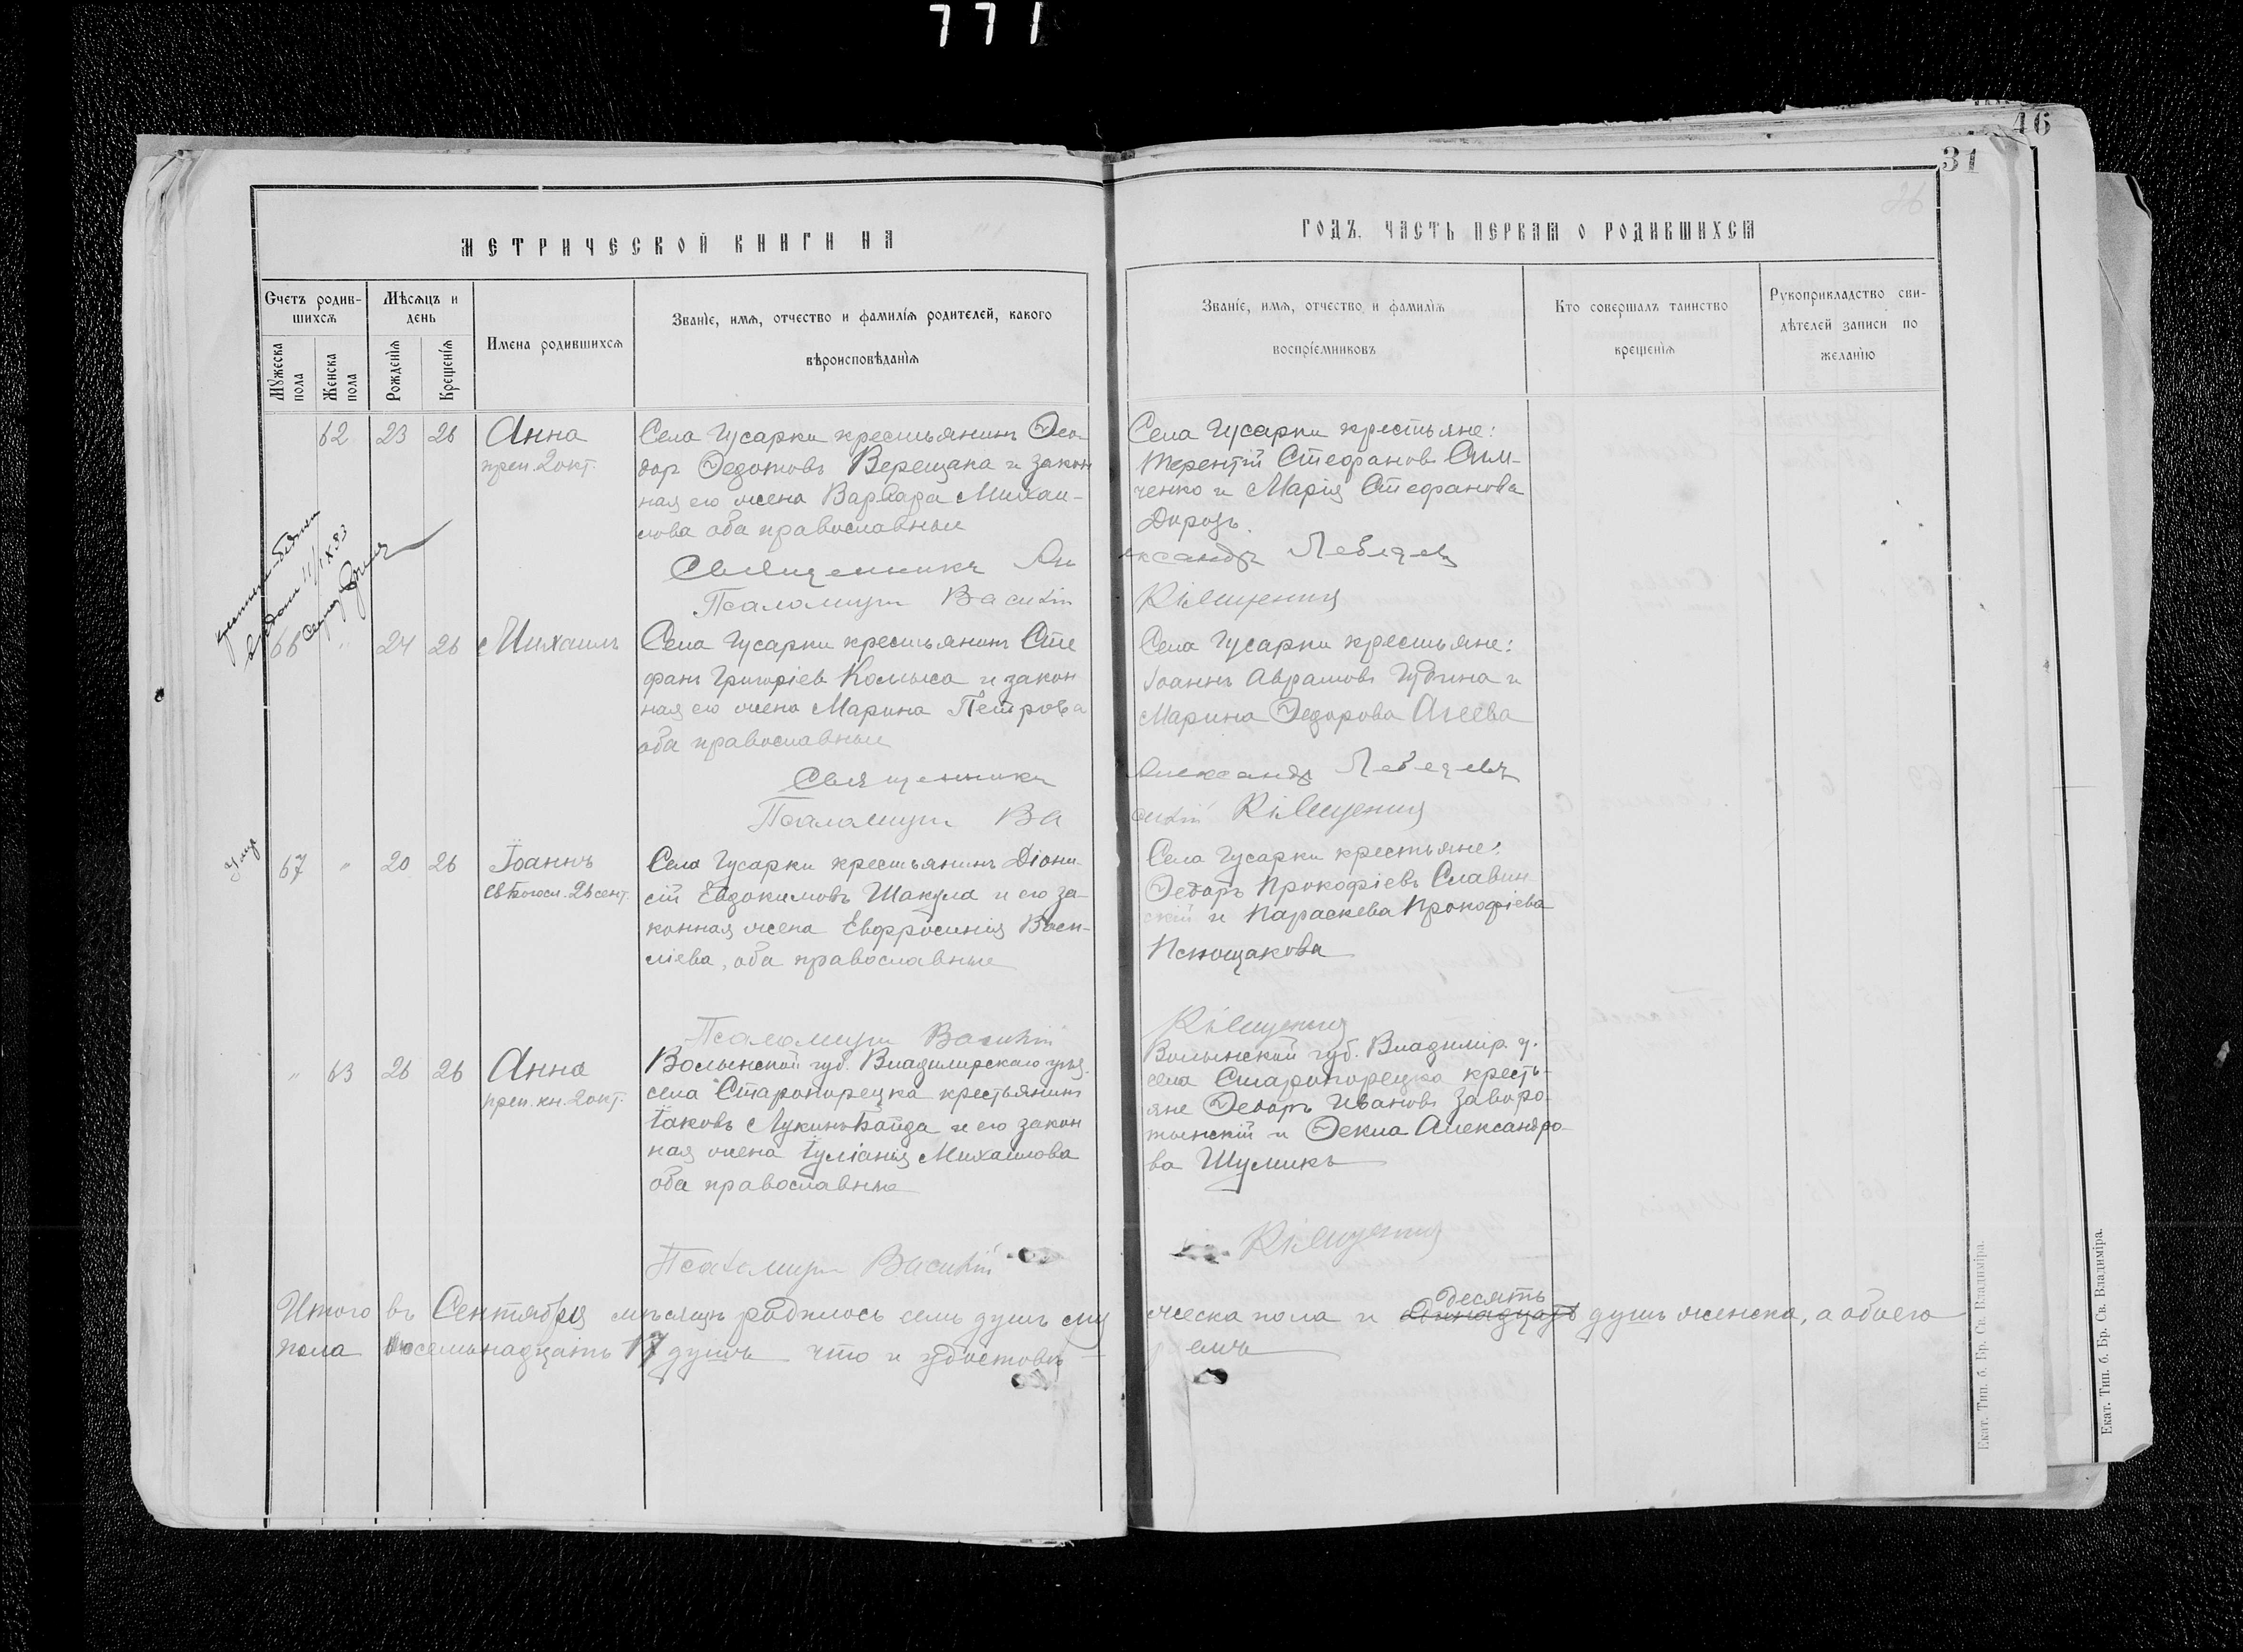 771
46
31
26
МЕТРИЧЕСКОЙ КНИГИ НА
ГОДЪ. ЧАСТЬ ПЕРВАЯ О РОДИВШИХСЯ
Счетъ родив-
шихся
Мѣсяцъ и
день
Мужеска
пола
Женска
пола
Рожденія
Крещенія
Имена родившихся
Званіе, имя, отчество и фамилія родителей, какого
вѣроисповѣданія
Званіе, имя, отчество и фамилія
воспріемниковъ
Кто совершалъ таинство
крещенія
Рукоприкладство сви-
дѣтелей записи по
желанію
62 23 26 Анна
преп. 2 окт.
Села Гусарки крестьянинъ Ѳео-
доръ Ѳедотовъ Верещака и закон
ная его жена Варвара Михаи-
лова оба православные
Села Гусарки крестьяне:
Терентій Стефановъ Сим-
ченко и Марія Стефанова
Дорозъ.
Священникъ Александръ Лебедевъ
Псаломщикъ Василій
66 " 24 26 Михаилъ
Села Гусарки крестьянинъ Сте
фанъ Григоріевъ Комыса и закон
ная его жена Марина Петрова
оба православные
Села Гусарки крестьяне:
Іоаннъ Аврамовъ Гудина и
Марина Ѳедорова Агеева
Священникъ Александръ Лебедевъ
Псаломщикъ Василій
67 " 20 26 Іоаннъ
св. Богосл. 26 сент.
Села Гусарки крестьянинъ Діони-
сій Евдокимовъ Шакула и его за-
конная жена Евфросинія Васи-
ліева, оба православные
Села Гусарки крестьяне:
Ѳедоръ Прокофіевъ Славин
скій и Параскева Прокофіева
Псаломщикъ Василій
" 63 26 26 Анна
преп. кн. 2 окт.
Волынской губ. Владимирскаго уѣзд.
села Старопорецка крестьянинъ
Іаковъ Лукинъ Байда и его закон
ная жена Іуліанія Михаилова
оба православные
Волынской губ. Владимір. у.
села Старопорецка кресть-
яне Ѳедоръ Ивановъ Заворо-
тынскій и Ѳекла Александро-
ва Шумикъ
Псаломщикъ Василій
Итого въ Сентябрѣ мѣсяцѣ родилось семь душъ мужеска пола и десять душъ женска, а обоего
пола семьнадцать 17 душъ что и удостовѣряемъ
Екат. Тип. б. Бр. Св. Владиміра.
Екат. Тип. б. Бр. Св. Владиміра.